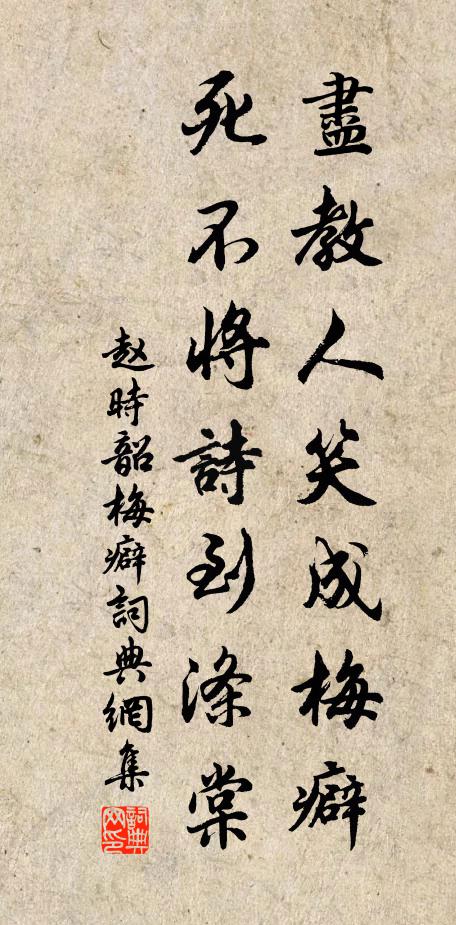 盡教人笑成梅癖
死不將詩到涤棠
赵時韶梅癖詞典網集
詞典网印